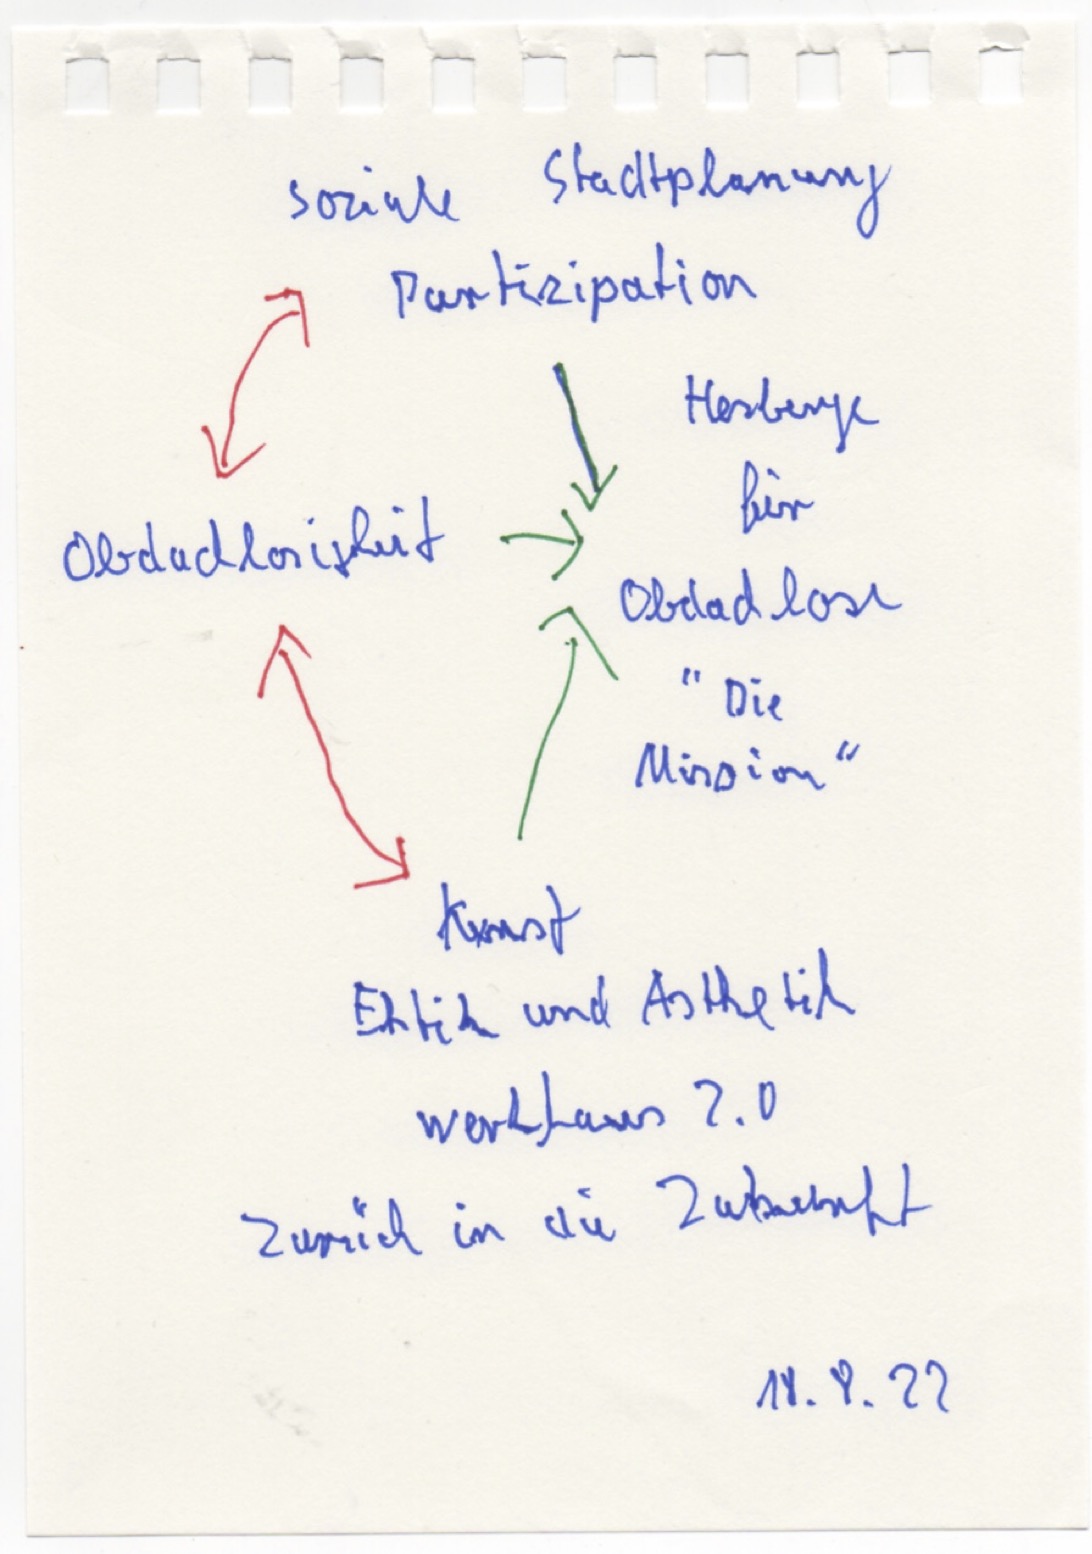 soziale Stadtplanung
Partizipation
Herberge
für
Obdachlosigkeit
Obdachlose
"Die
Mission"
Kunst
Ehtik und Ästhetik
werkhaus 2.0
Zurück in die Zukunft
18.8.22